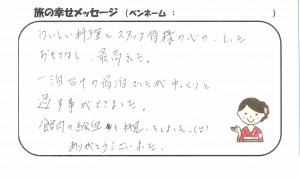 旅の幸せメッセージ (ペンネーム： )
おいしい料理とスタッフ皆様の心のこもった
おもてなし、最高でした。
一泊だけの宿泊でしたがゆっくりと
過す事ができました。
館内の絵画も いたしました。
ありがとうございました。